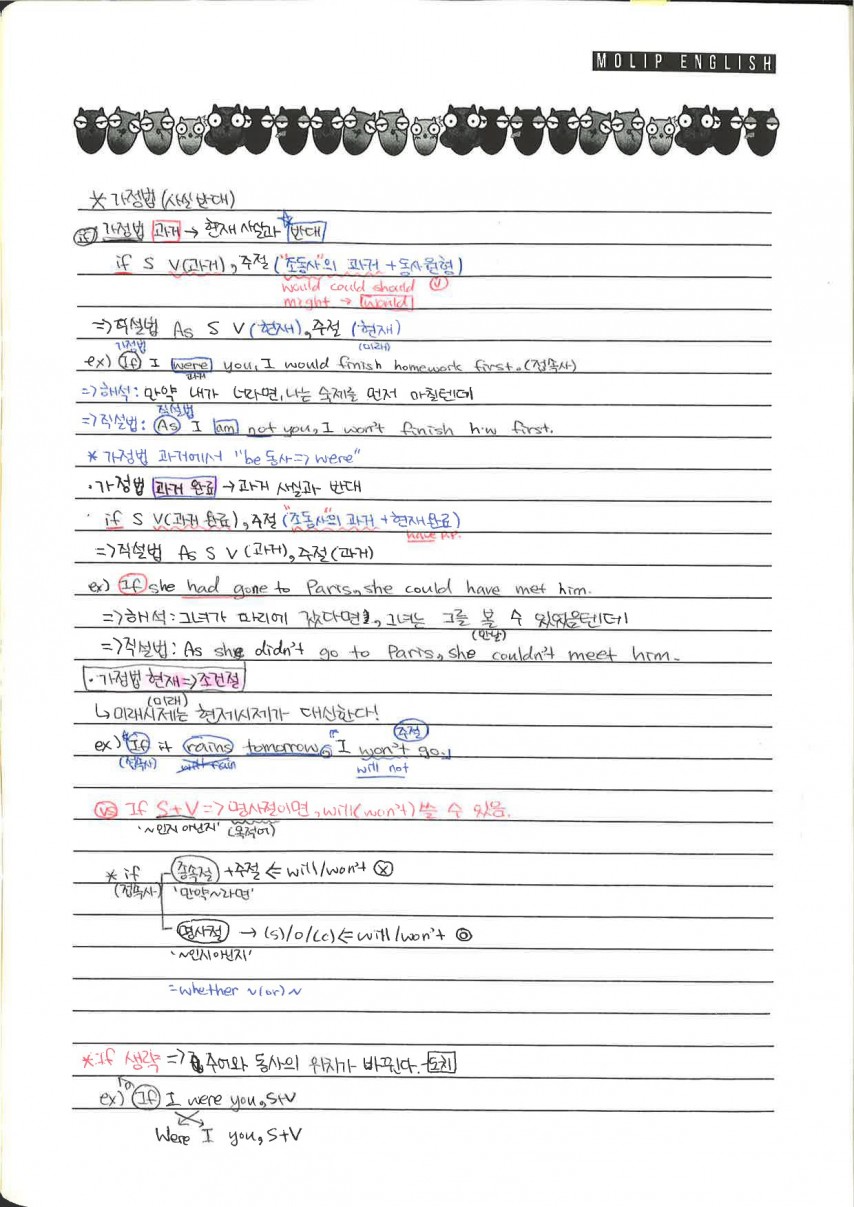 MOLIP ENGLISH
* 가정법 (사실 반대)
가정법 과거 → 현재 사실과 반대
if S V(과거), 주절 ("조동사"의 과거 + 동사원형)
would could should
might → would
=> 직설법 As S V (현재), 주절 (현재)
가정법 (미래)
ex) If I were you, I would finish homework first. (접속사)
과거
=> 해석: 만약 내가 너라면, 나는 숙제를 먼저 마칠텐데
직설법
=> 직설법: As I am not you, I won't finish h.w first.
* 가정법 과거에서 "be 동사 => were"
· 가정법 과거 완료 → 과거 사실과 반대
· if S V(과거 완료), 주절 ("조동사"의 과거 + 현재완료)
have P.P.
=> 직설법 As S V (과거), 주절 (과거)
ex) If she had gone to Paris, she could have met him.
=> 해석: 그녀가 파리에 갔다면, 그녀는 그를 볼 수 있었을텐데
(만날)
=> 직설법: As she didn't go to Paris, she couldn't meet him.
· 가정법 현재 => 조건절
(미래)
↳ 미래시제는 현재시제가 대신한다!
주절
ex) If it rains tomorrow, I won't go.
(접속사) will rain will not
vs If S+V => 명사절이면, will(won't) 쓸 수 있음.
'~인지 아닌지' (목적어)
* if 종속절 + 주절 ⇐ will/won't ⓧ
(접속사) '만약~라면'
명사절 → (s)/o/(c) ⇐ will/won't ◎
'~인지아닌지'
= whether ~ (or) ~
* If 생략 => 주어와 동사의 위치가 바뀐다. - 도치
ex) If I were you, S+V
Were I you, S+V